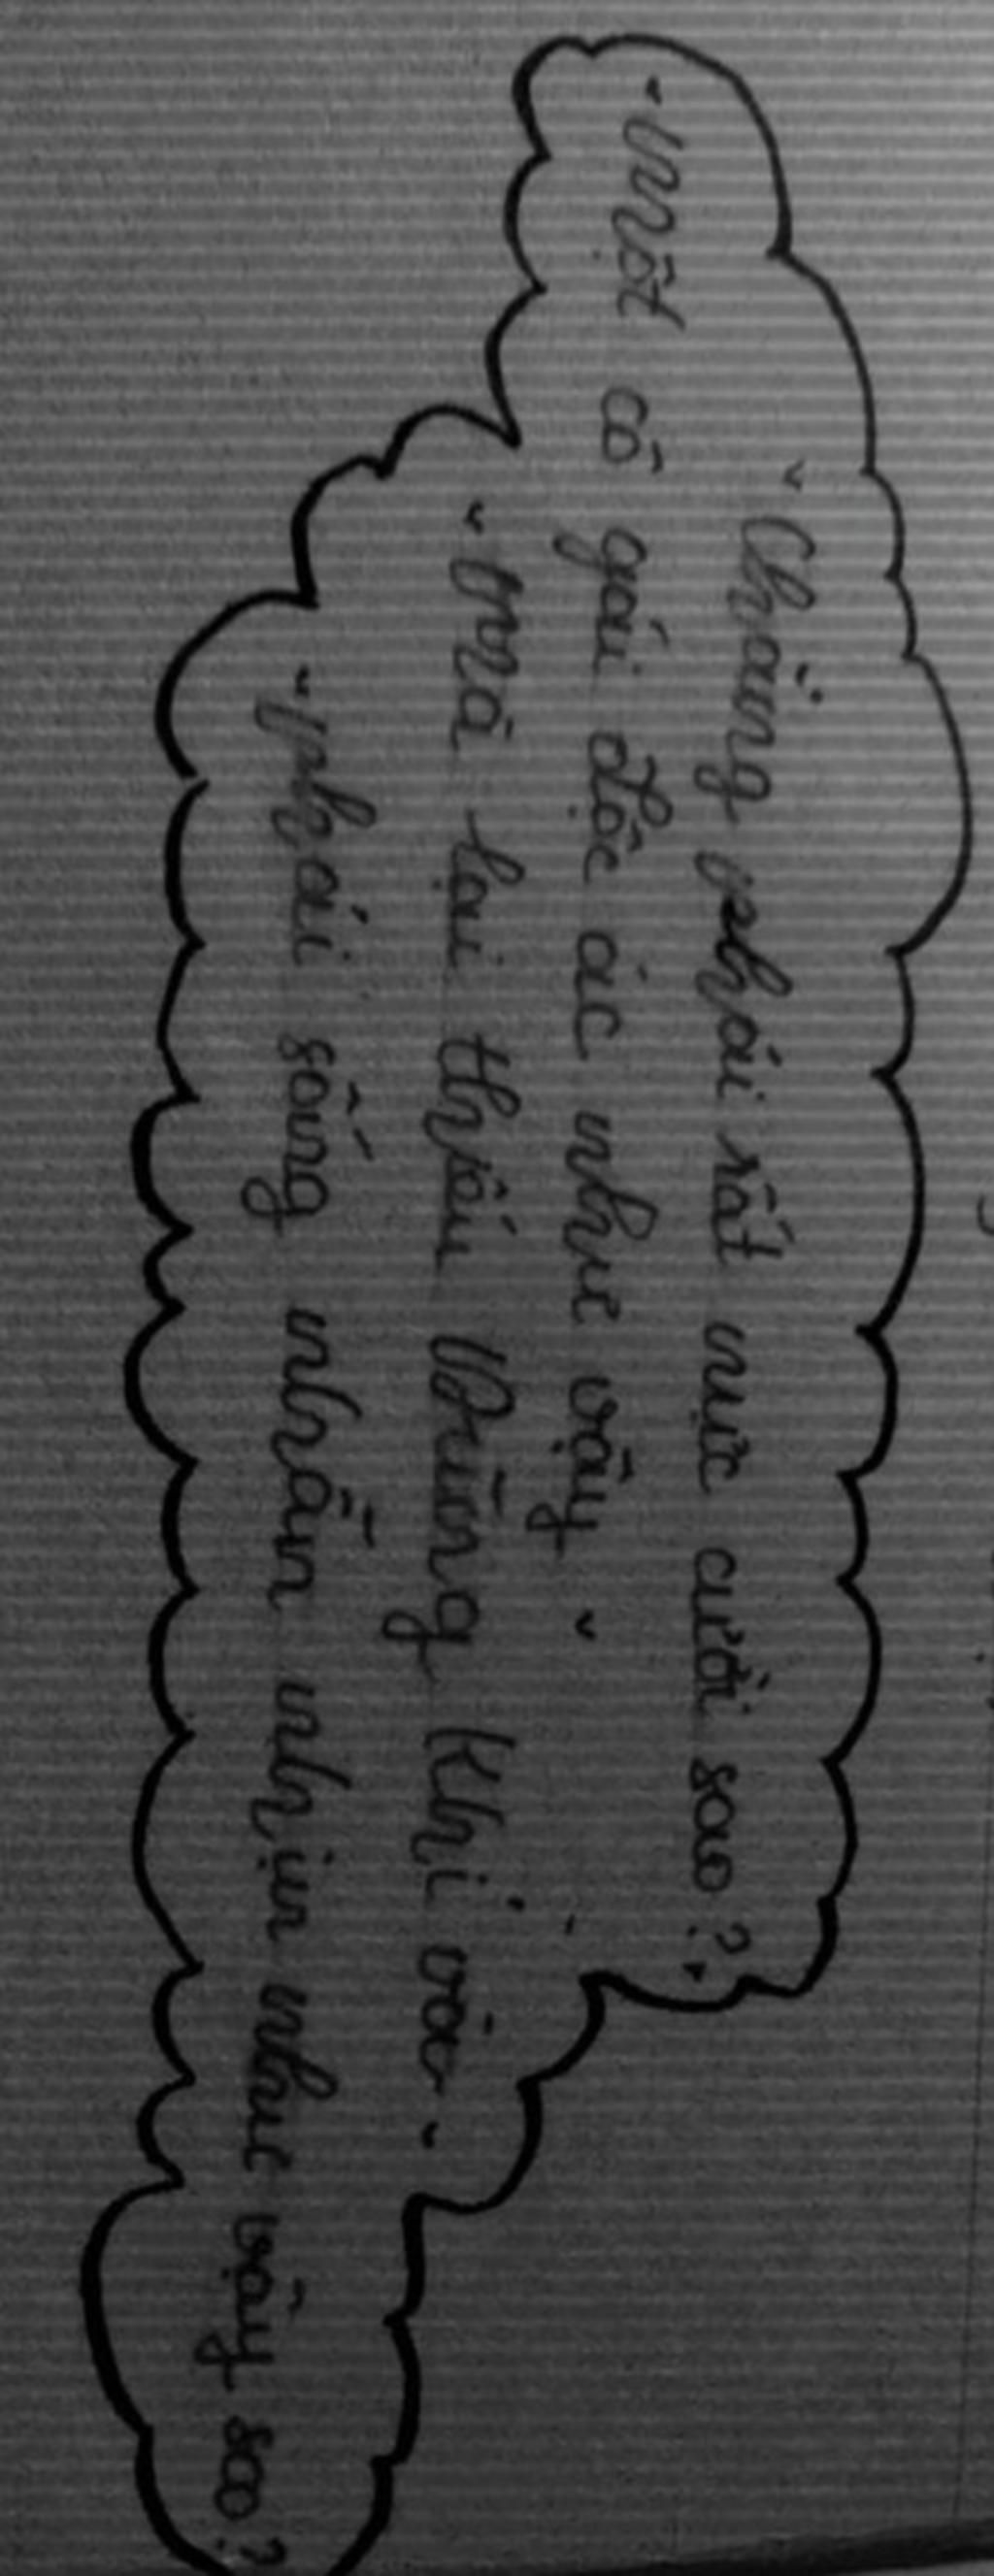 "Chẳng phải rất nực cười sao?"
"Một cô gái độc ác như vậy"
"mà lại thiếu thùng khi và"
"phải sống nhẫn nhịn như vậy sao?